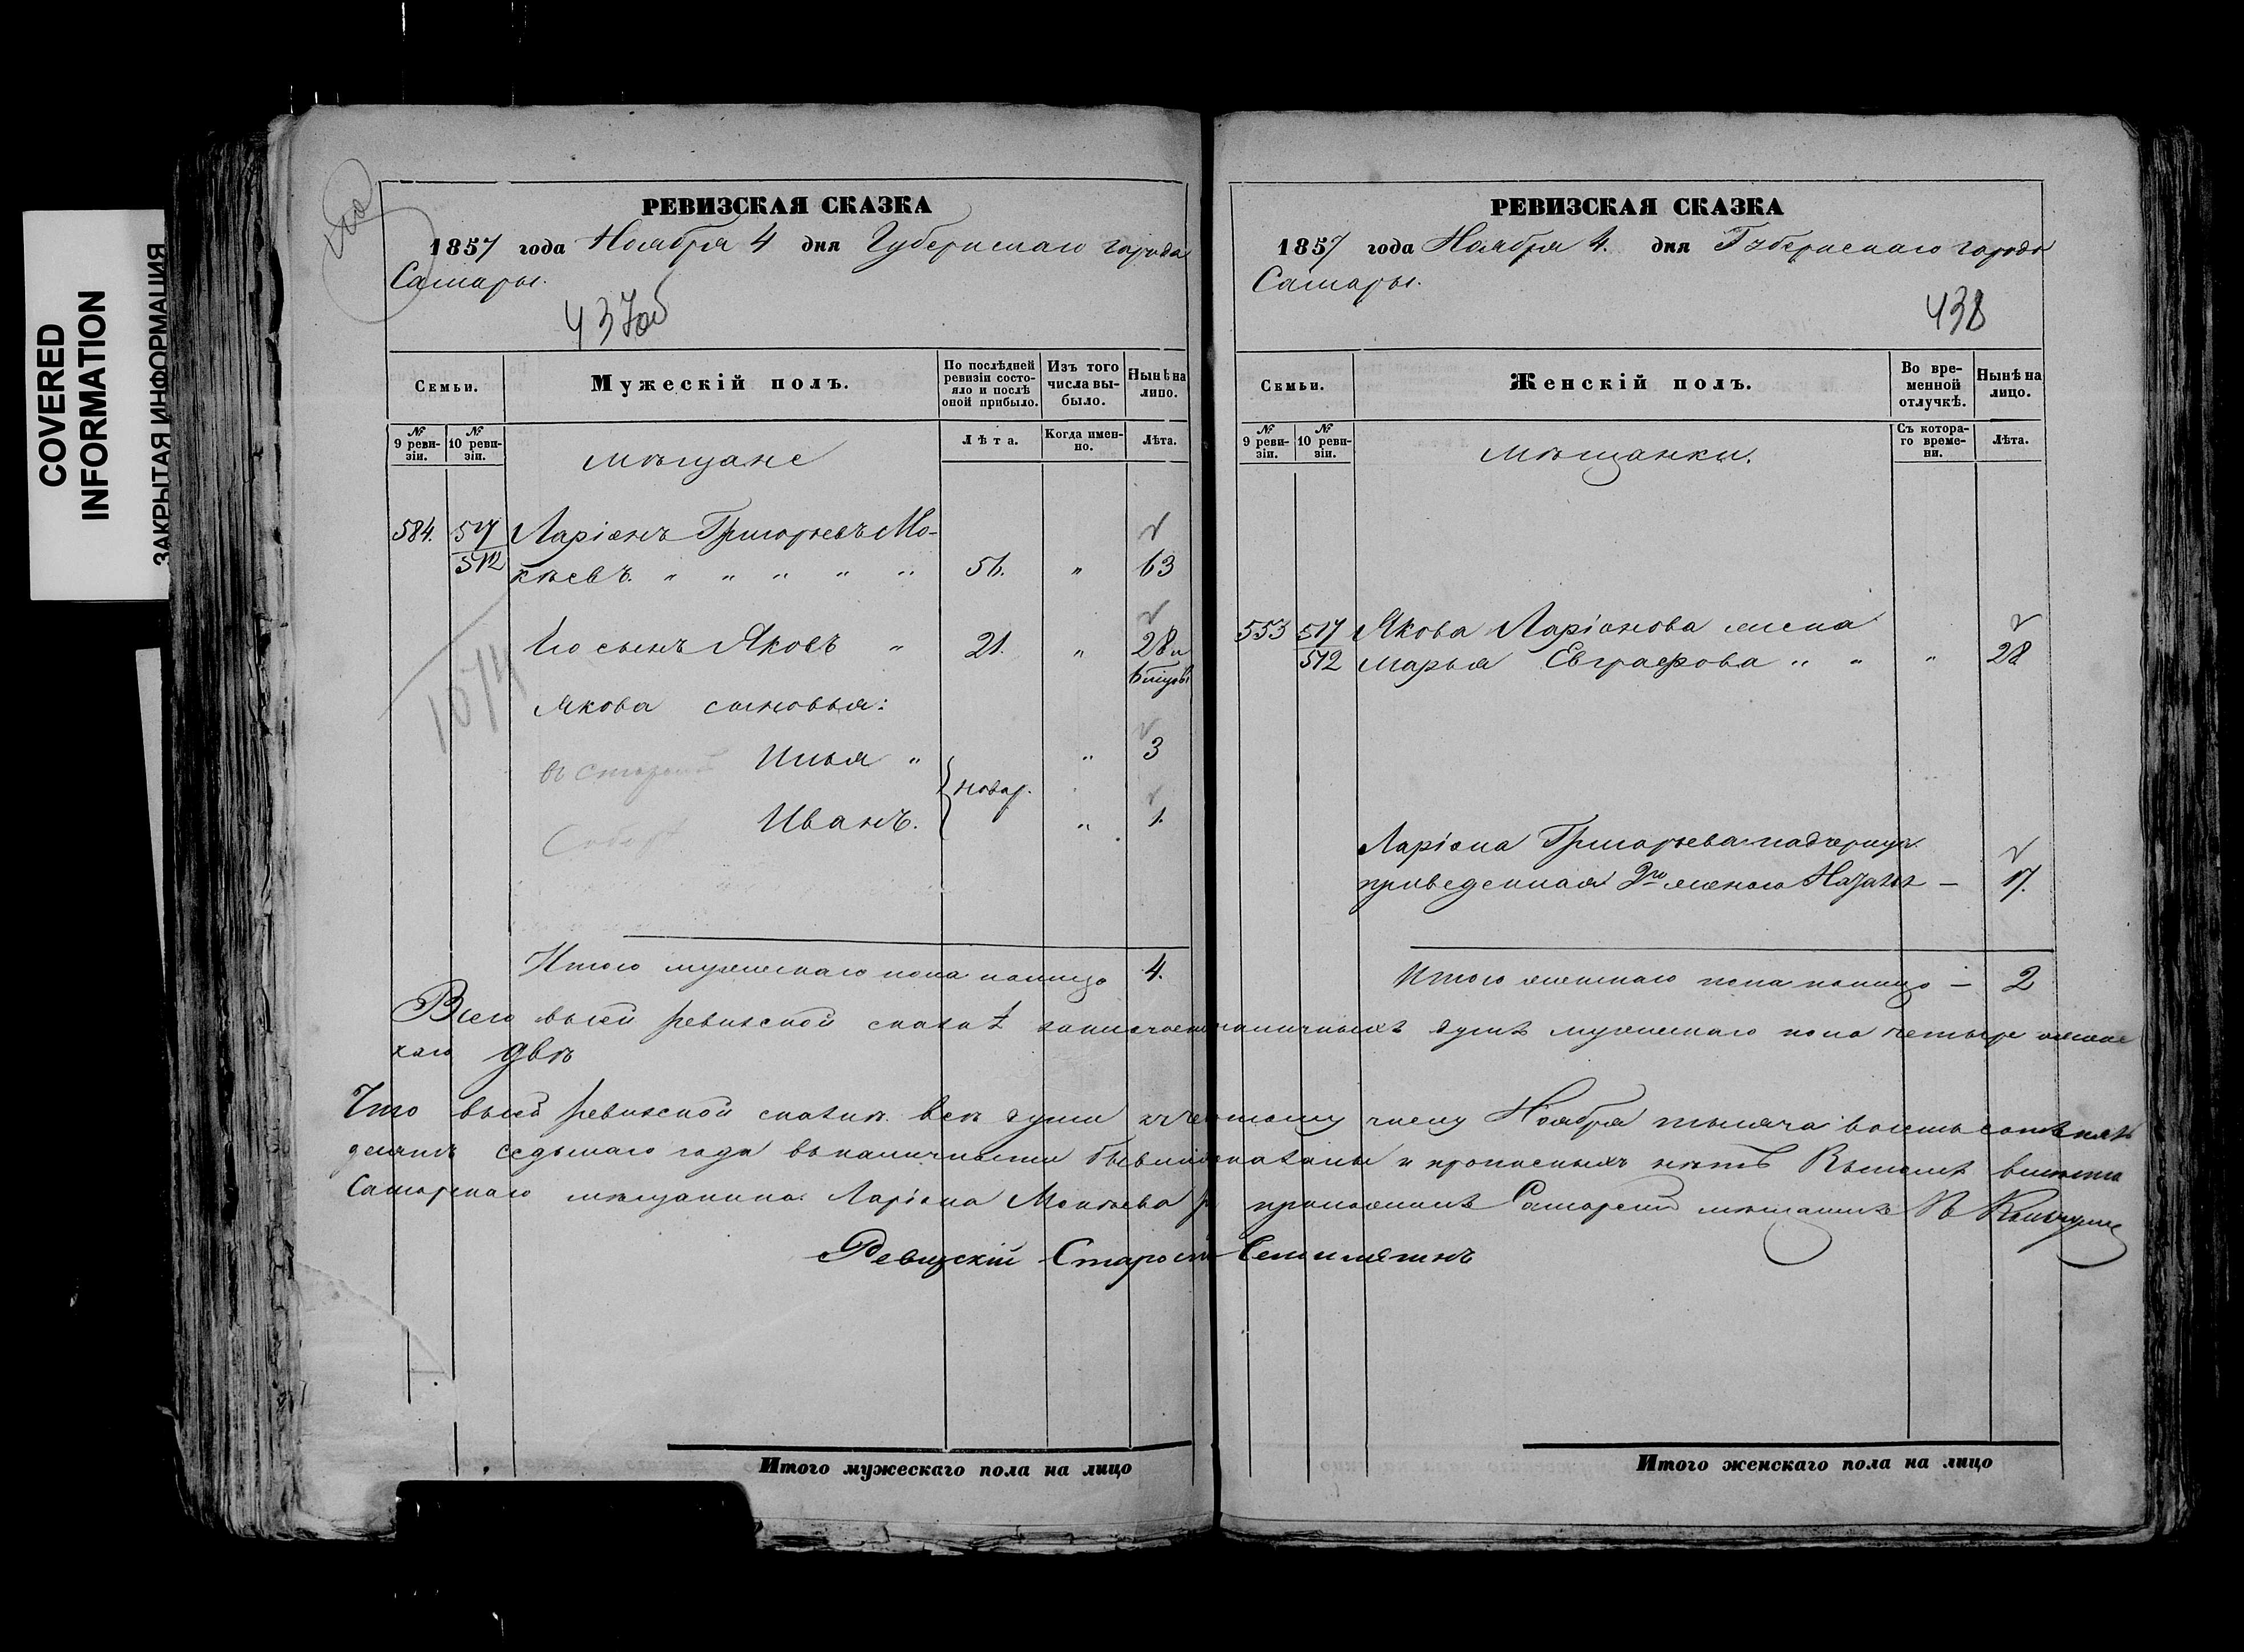 COVERED
INFORMATION
ЗАКРЫТАЯ ИНФОРМАЦИЯ
РЕВИЗСКАЯ СКАЗКА
1857 года Ноября 4 дня Губернскаго города
Самары.
437об
Семьи.
Мужескій полъ.
По послѣдней
ревизіи состо-
яло и послѣ
оной прибыло.
Изъ того
числа вы-
было.
Нынѣ на
лицо.
№
9 реви-
зіи.
№
10 реви-
зіи.
мѣщане
Лѣта.
Когда имен-
но.
Лѣта.
584. 517 Ларіонъ Григорьевъ Мо-
512 кѣевъ. " " " " " 56. " 63
Его сынъ Яковъ " 21. " 28 и
Якова сыновья:
Илья " " 3
новор.
Иванъ. " 1.
1674
Итого мужескаго пола налицо 4.
РЕВИЗСКАЯ СКАЗКА
1857 года Ноября 4. дня Губернскаго города
Самары.
438
Семьи.
Женскій полъ.
Во вре-
менной
отлучкѣ.
Нынѣ на
лицо.
№
9 реви-
зіи.
№
10 реви-
зіи.
Мѣщанки.
Съ котора-
го време-
ни.
Лѣта.
553 517 Якова Ларіонова жена
512 Марья Евграфова " " " 28
Ларіона Григорьева падчерица
приведенная 2ю женою 17.
Итого женскаго пола налицо — 2
Всего в сей ревизской сказкѣ наличныхъ душъ мужескаго пола четыре
скаго двѣ
Что в сей ревизской сказкѣ всѣ души к четвертому числу Ноября тысяча восемь сотъ пять
десятъ седьмаго года в наличности показаны и прописныхъ нѣтъ
Самарскаго мѣщанина Ларіона Мокѣева Самарский мѣщанинъ
Ревизскій Староста
Итого мужескаго пола на лицо
Итого женскаго пола на лицо